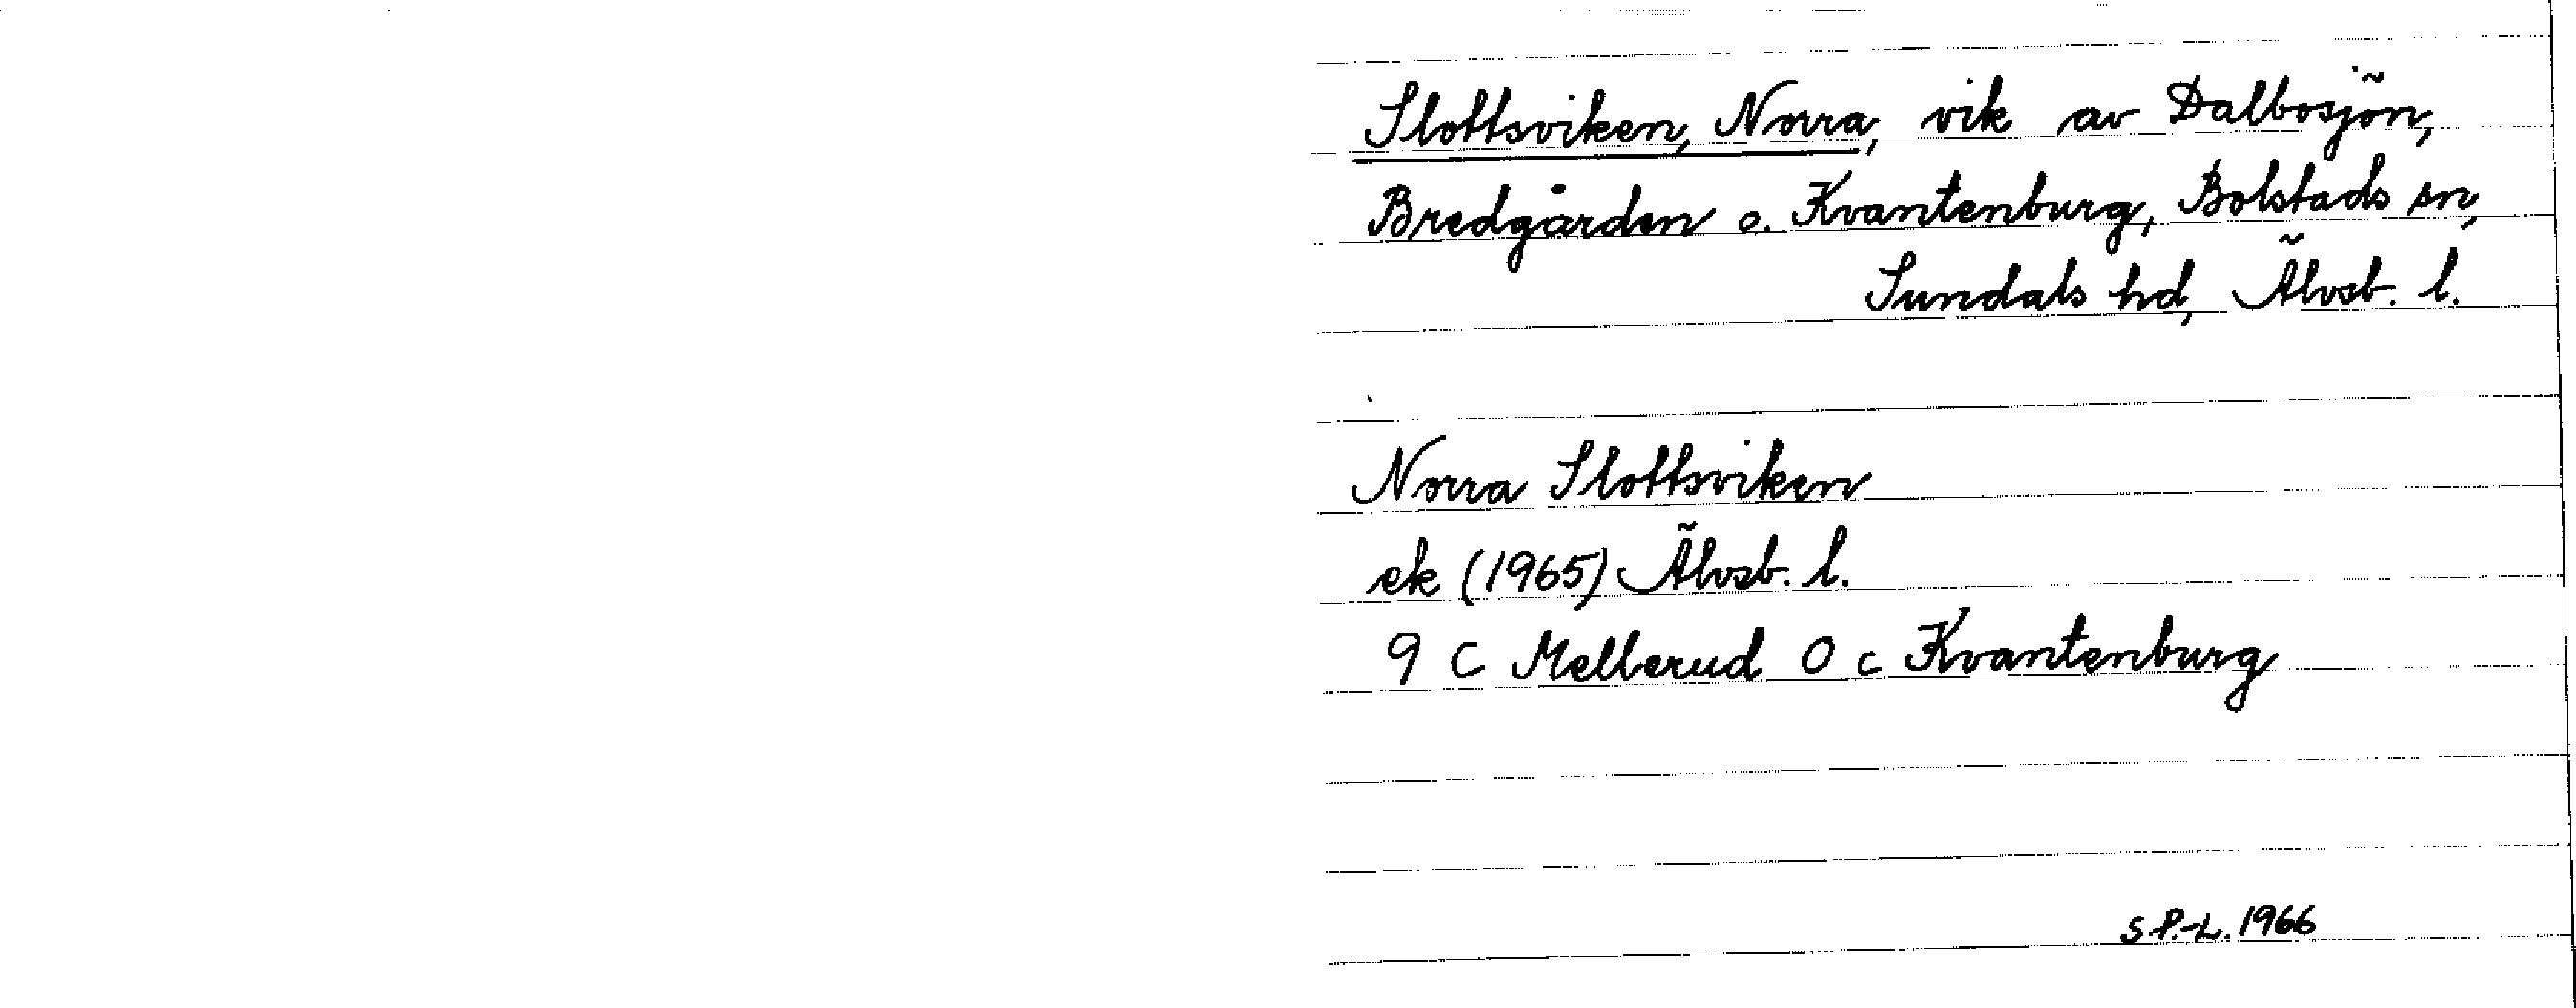 Slottsviken, Norra, vik av Dalbosjön,
Bredgården o. Kvantenburg, Bolstads sn,
Sundals hd, Älvsb. l.
Norra Slottsviken
ek (1965) Älvsb. l.
9 C Mellerud O c Kvantenburg
S P.-L. 1966